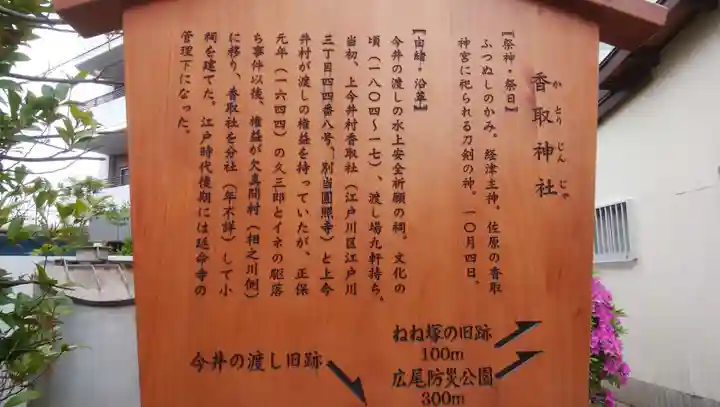 香取神社
かとりじんじゃ
『祭神・祭日』
ふつぬしのかみ。経津主神。佐原の香取
神宮に祀られる刀剣の神。一〇月四日。
『由緒・沿革』
今井の渡しの水上安全祈願の祠。文化の
頃（一八〇四～一七）、渡し場九軒持ち。
当初、上今井村香取社（江戸川区江戸川
三丁目四四番八号、別当圓照寺）と上今
井村が渡しの権益を持っていたが、正保
元年（一六四四）の久三郎とイネの駆落
ち事件以後、権益が欠真間村（相之川側）
に移り、香取社を分社（年不詳）して小
祠を建てた。江戸時代後期には延命寺の
管理下になった。
ねね塚の旧跡
100m
広尾防災公園
300m
今井の渡し旧跡